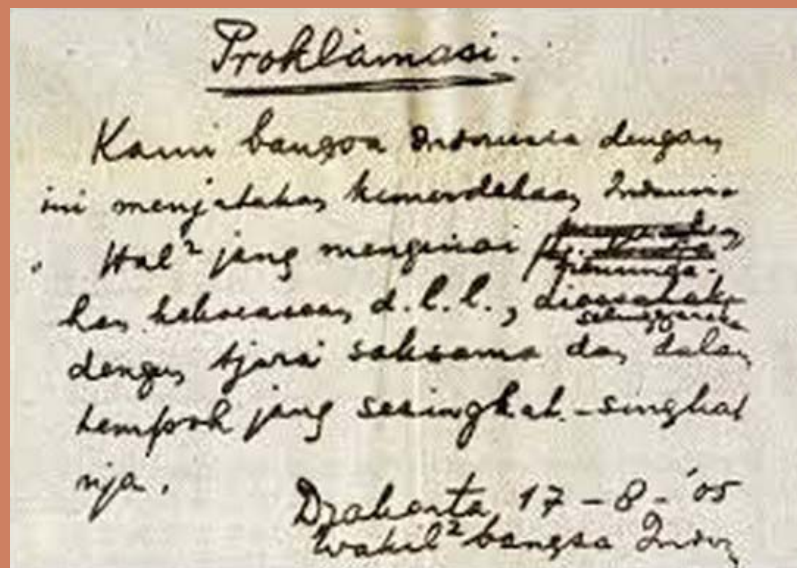 Proklamasi.
Kami bangsa Indonesia dengan
ini menjatakan kemerdekaan Indonesia
Hal² jang mengenai
pemindahan
kan kekoeasaan, d.l.l., 
diselenggarakan
dengan tjara saksama dan dalam
tempoh jang sesingkat-singkat
nja.
Djakarta, 17 - 8 - '05
Wakil² bangsa Indon